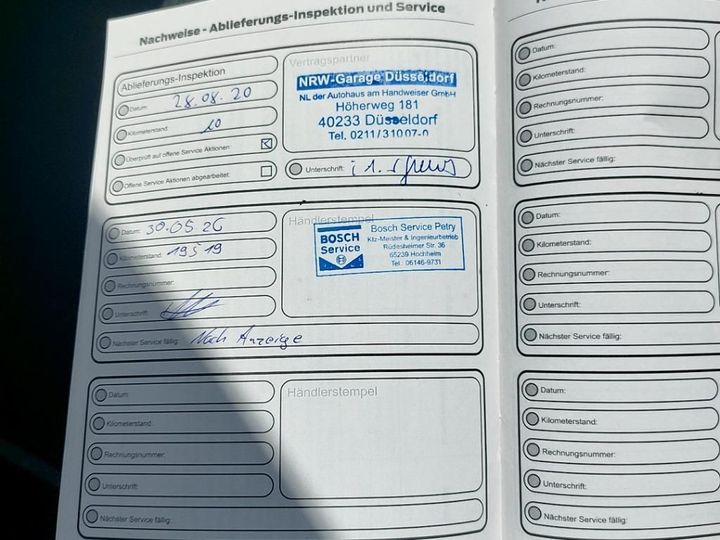 Nachweise - Ablieferungs-Inspektion und Service
Ablieferungs-Inspektion
Datum: 28.08.20
Kilometerstand: 10
Überprüft auf offene Service Aktionen:
Offene Service Aktionen abgearbeitet:
Vertragspartner
NRW-Garage Düsseldorf
NL der Autohaus am Handweiser GmbH
Höherweg 181
40233 Düsseldorf
Tel. 0211/31007-0
Unterschrift:
Datum: 30.05.26
Kilometerstand: 19519
Rechnungsnummer:
Unterschrift:
Nächster Service fällig: Nach Anzeige
Händlerstempel
BOSCH
Service
Bosch Service Petry
Kfz-Meister & Ingenieurbetrieb
Rüdesheimer Str. 36
65239 Hochheim
Tel.: 06146-9731
Datum:
Kilometerstand:
Rechnungsnummer:
Unterschrift:
Nächster Service fällig:
Händlerstempel
Datum:
Kilometerstand:
Rechnungsnummer:
Unterschrift:
Nächster Service fällig:
Datum:
Kilometerstand:
Rechnungsnummer:
Unterschrift:
Nächster Service fällig:
Datum:
Kilometerstand:
Rechnungsnummer:
Unterschrift:
Nächster Service fällig: